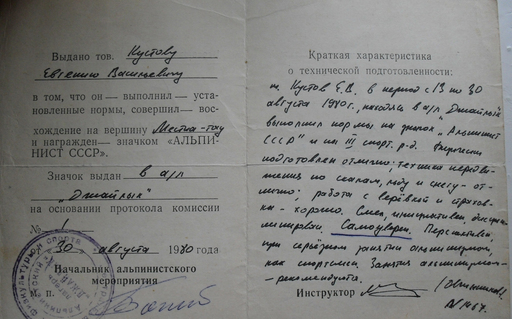 Выдано тов. Кустову
Евгению Васильевичу
в том, что он — выполнил — уста-
новленные нормы, совершил — вос-
хождение на вершину Местиа-тау
и награжден — значком «АЛЬПИ-
НИСТ СССР».
Значок выдан в а/л
"Джайлык"
на основании протокола комиссии
№ 1
"30" августа 1970 года
Начальник альпинистского
мероприятия
М. п.
Краткая характеристика
о технической подготовленности:
т. Кустов Е.В. в период с 13 по 30
августа 1970г. находясь в а/л "Джайлык"
выполнил нормы на значок "Альпинист
СССР" и на III спорт. р-д. Физически
подготовлен отлично; техника передви-
жения по скалам, льду и снегу - от-
лично; работа с верёвкой и страхов-
ка - хорошо. Смел, инициативен, дисципли-
нирован. Самоуверен. Перспективен
при серьёзном занятии альпинизмом,
как спортсмен. Занятия альпинизмом -
- рекомендуются.
Инструктор